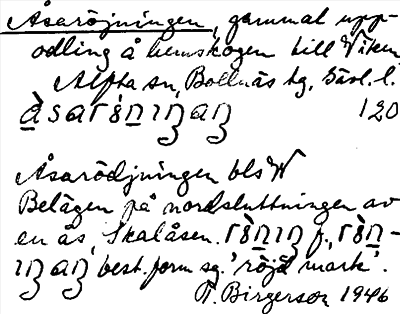 Åsaröjningen, gammal upp-
odling å hemskogen till Viken,
Alfta sn, Bollnäs tg, Gävl. l.
120
Åsarödjningen bls W
Belägen på nordsluttningen av
en ås, Skalåsen. f.,
best. form sg. 'röjd mark'.
T. Birgerson 1946